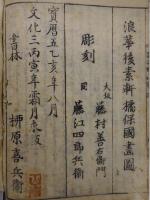 浪華後素軒橘保國畫圖
彫刻
大坂 藤村善右衛門
同 藤江四郎兵衛
寳暦五乙亥年八月
文化三丙寅年霜月求板
書林
栁原喜兵衛